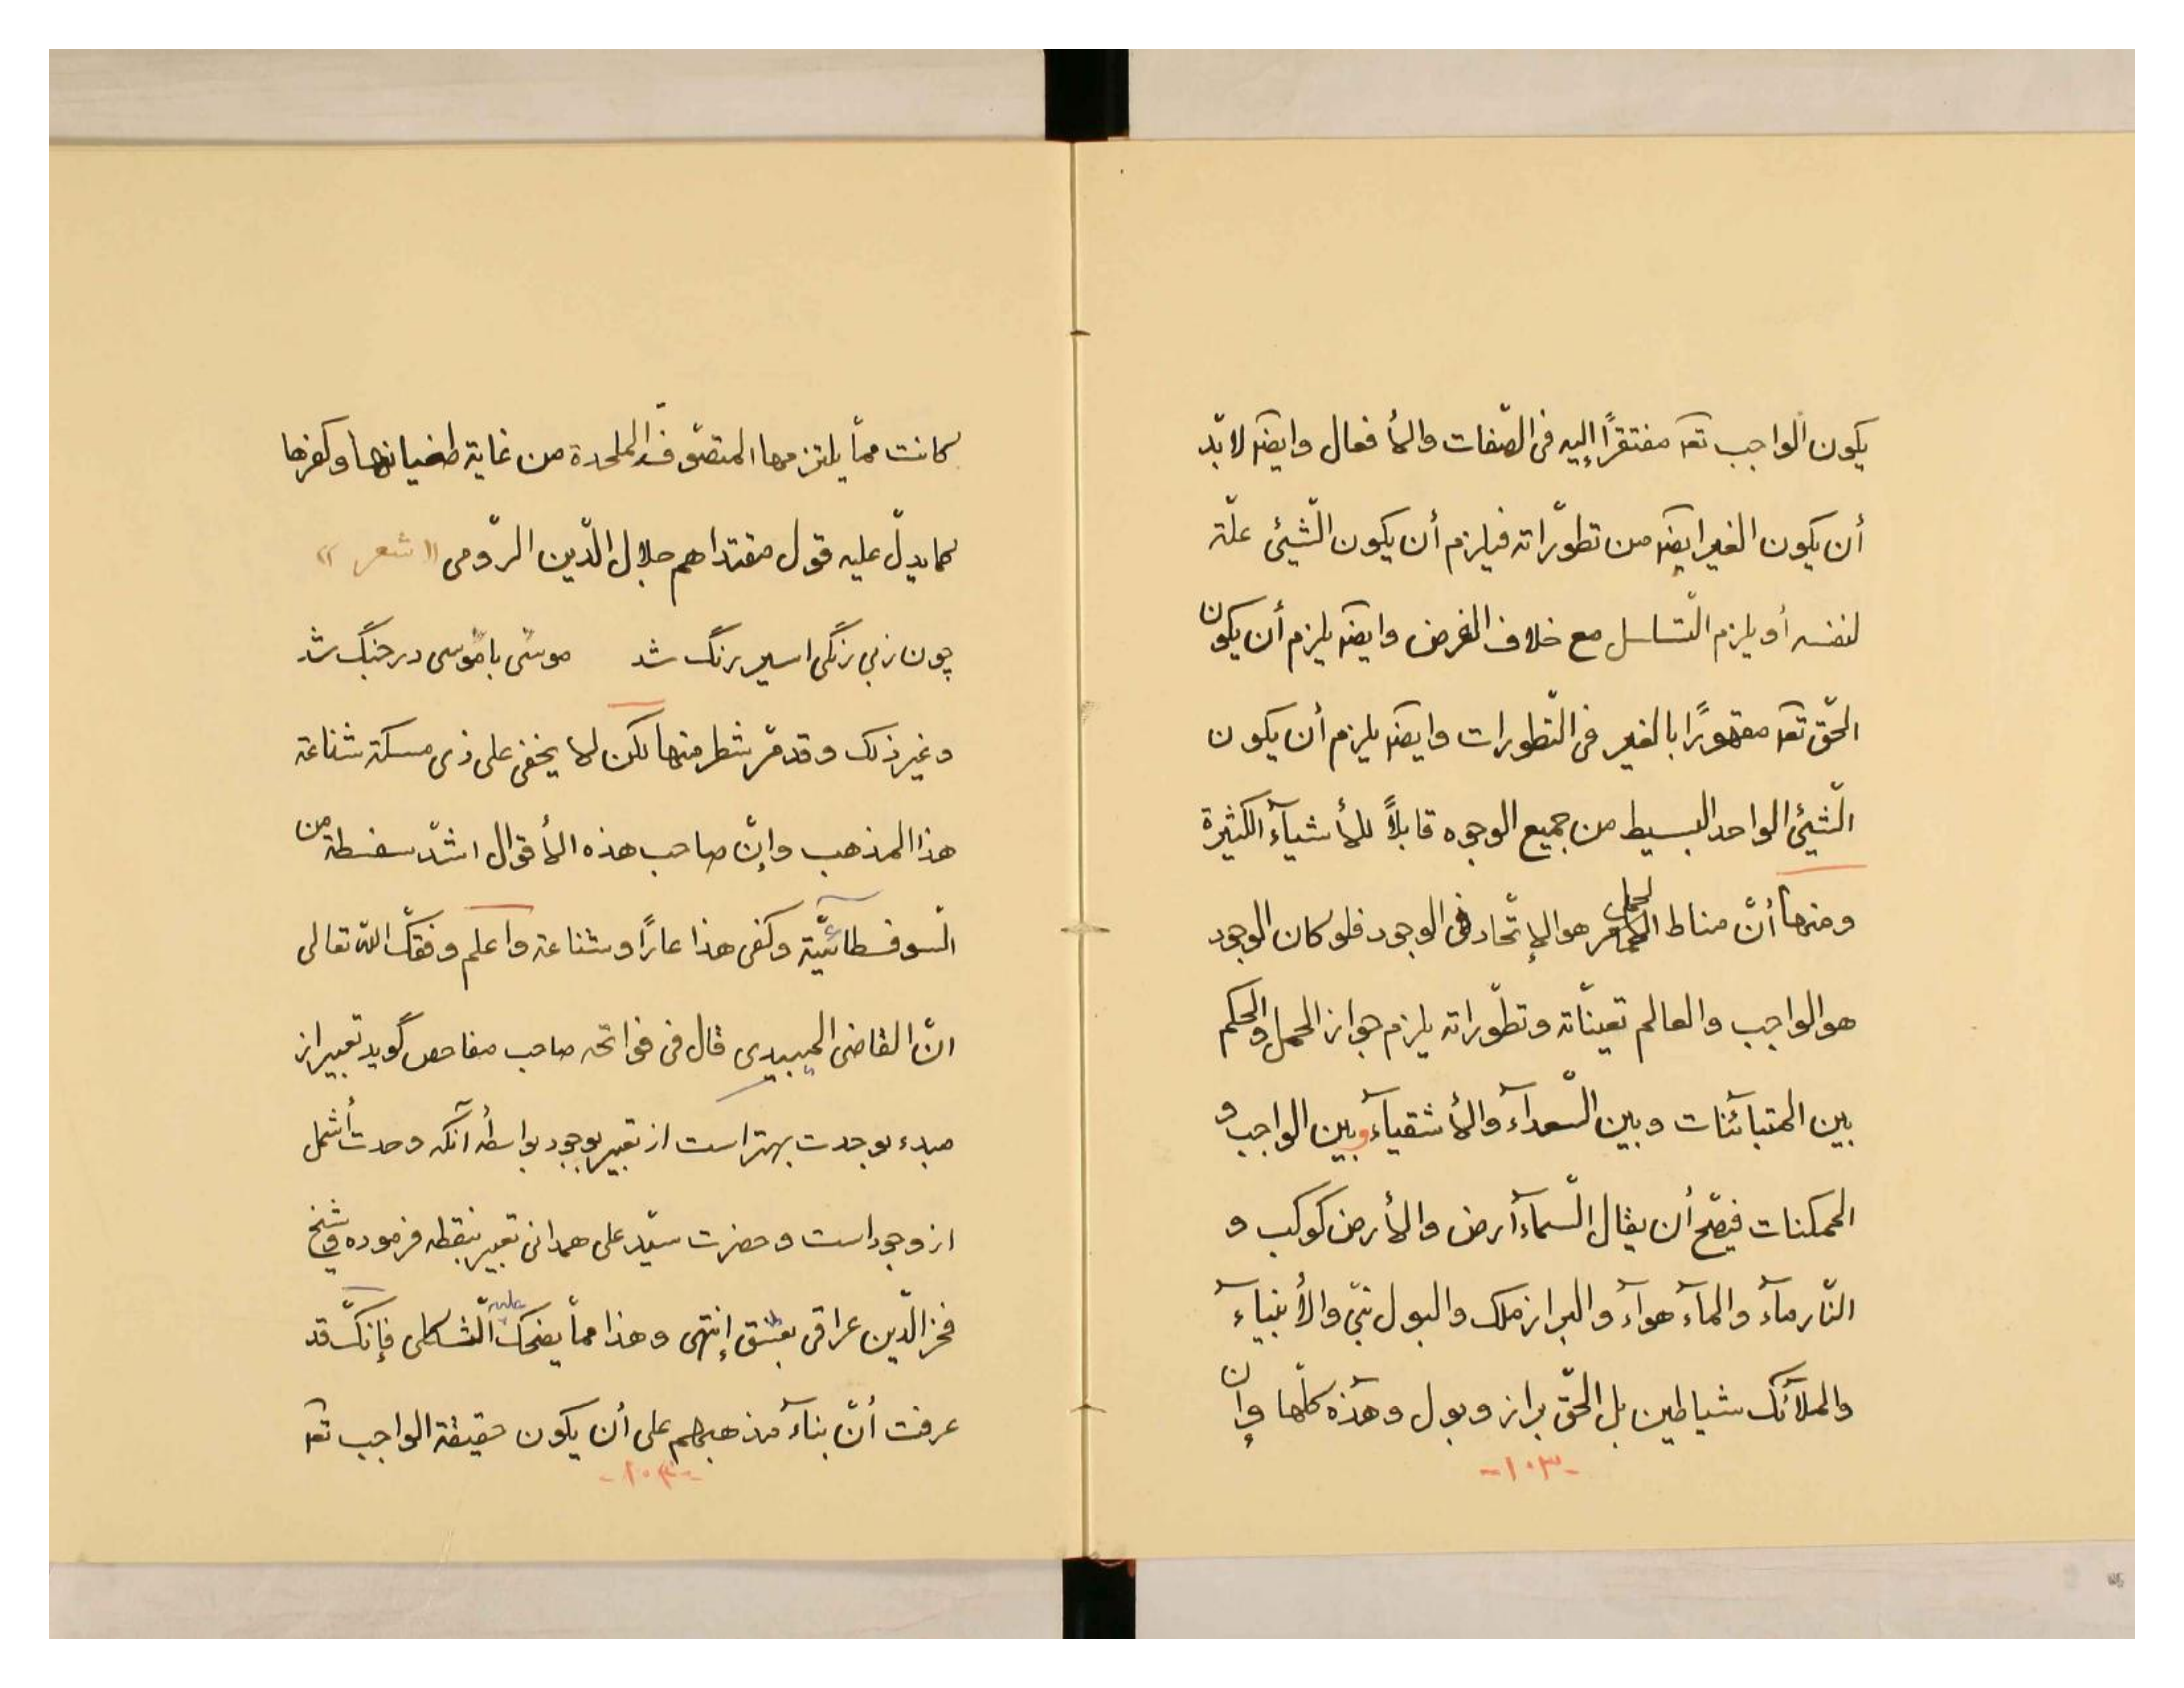 يكون الواجب تعہ مفتقرًا إليه فى الصّفات والأفعال وايضہ لابّد
أن يكون الغير ايضہ من تطوّراته فيلزم أن يكون الشّيئ علّة
لنفسه أو يلزم التّساسل مع خلاف الفرض وايضہ يلزم أن يكون
الحّق تعہ مقهورًا بالغير فى التّطورات وايضہ يلزم أن يكون
الشّيئ الواحد البسيط من جميع الوجوه قابلاً للأشيآء الكثيرة
ومنها أنّ مناط الحمل هو الإتّحاد فى الوجود فلو كان الوجود
هو الواجب والعالم تعينّاته وتطوّراته يلزم جواز الحمل والحكم
بين المتبآئنات وبين السّعدآء والأشقيآء وبين الواجب و
الممكنات فيصّح أن يقال السّمآء أرض والأرض كوكب و
النّار مآء والمآء هوآء والبراز ملك والبول نبّى والأنبيآء
والملآئك شياطين بل الحّق براز وبول وهذه كلّها وإن
-۱۰۳-
كانت ممّا يلتزمها المتصّوفة الملحدة من غاية طغيانها وكفرها
كما يدلّ عليه قول مقتداهم جلال الدّين الرّومى «شعر»
چون زبى رنگى اسير رنگ شد موسّى با موسى در جنگ شد
وغير ذلك وقد مّر شطر منها لكن لا يخفى على ذى مسكة شناعة
هذا المذهب وإنّ صاحب هذه الأقوال اشدّ سفسطة من
السّوفسطائيّة وكفى هذا عارًا وشناعة واعلم وفقّك اللّه تعالى
انّ القاضى الميبيدى قال فى فواتحه صاحب مفاحص گويد تعبير از
مبدء بوحدت بهتر است از تعبير بوجود بواسطۀ آنكه وحدت أشمل
از وجود است وحضرت سيّد على همدانى تعبير بنقطه فرموده وشيخ
فخر الدّين عراقى بعشق إنتهى وهذا ممّا يضحك عليه الثّكلى فإنّك قد
عرفت أنّ بنآء مذهبهم على أن يكون حقيقة الواجب تعہ
-۱۰۴-